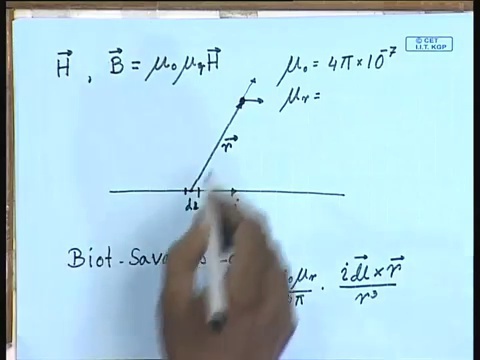 © CET
I.I.T. KGP
H⃗ , B⃗ = μ₀ μᵣ H⃗
μ₀ = 4π × 10⁻⁷
μᵣ =
r⃗
dl
i
Biot-Sav
μᵣ / π · i dl⃗ × r⃗ / r³